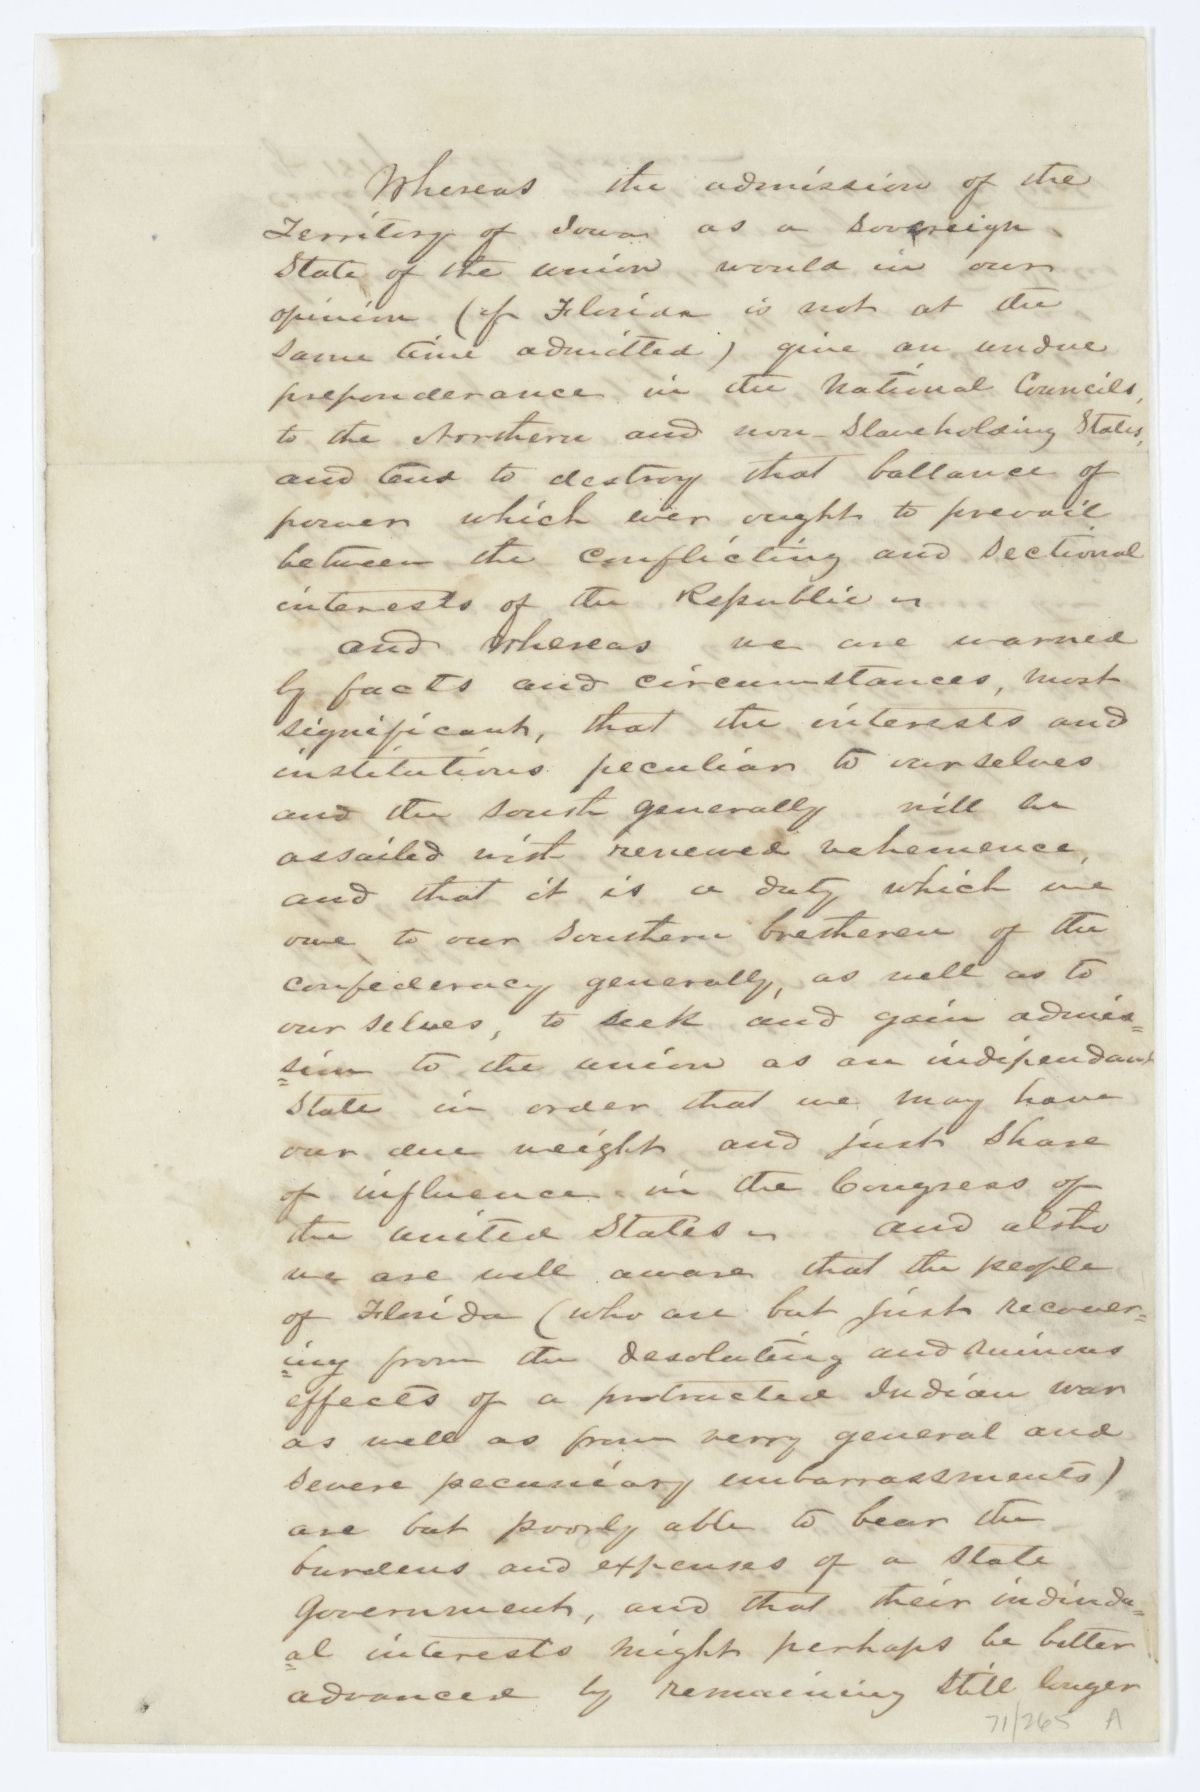 Whereas the admission of the
Territory of Iowa as a Sovereign
State of the union would in our
opinion (if Florida is not at the
same time admitted) give an undue
preponderance in the National Councils,
to the Northern and non-Slaveholding States,
and tend to destroy that ballance of
power which ever ought to prevail
between the conflicting and Sectional
interests of the Republic ~
and Whereas we are warned
by facts and circumstances, most
significant, that the interests and
institutions peculiar to ourselves
and the South generally will be
assailed with renewed vehemence,
and that it is a duty which we
owe to our Southern bretheren of the
confederacy generally, as well as to
our selves, to seek and gain admis=
=sion to the union as an indipendant
State in order that we may have
our due weight and just Share
of influence in the Congress of
the united States ~ and altho
we are well aware that the people
of Florida (who are but just recover=
=ing from the desolating and ruinous
effects of a protracted Indian war
as well as from verry general and
Severe pecuniary embarrassments)
are but poorly able to bear the
burdens and expenses of a State
Government, and that their individu=
=al interests might perhaps be better
advanced by remaining Still longer
71/265 A